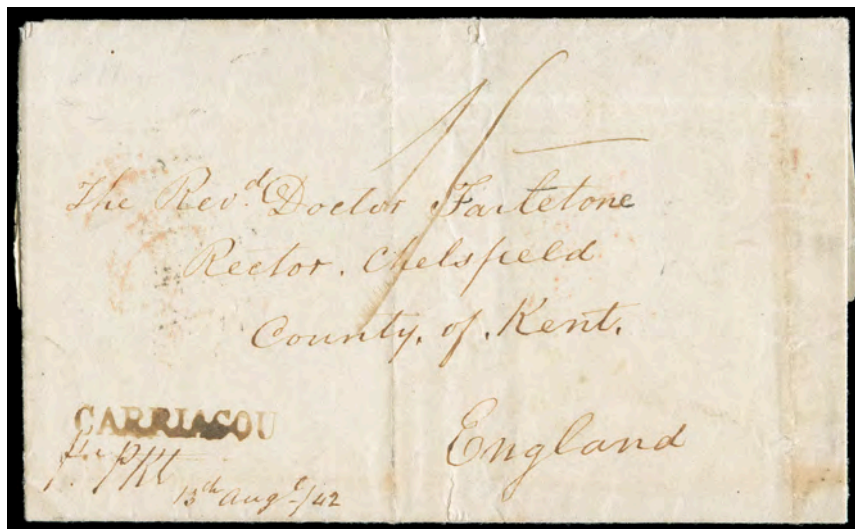 1/-
The Revd Doctor Tarletone
Rector. Chelsfield
County. of. Kent.
England
CARRIACOU
Per Pkt
13th Augt/42